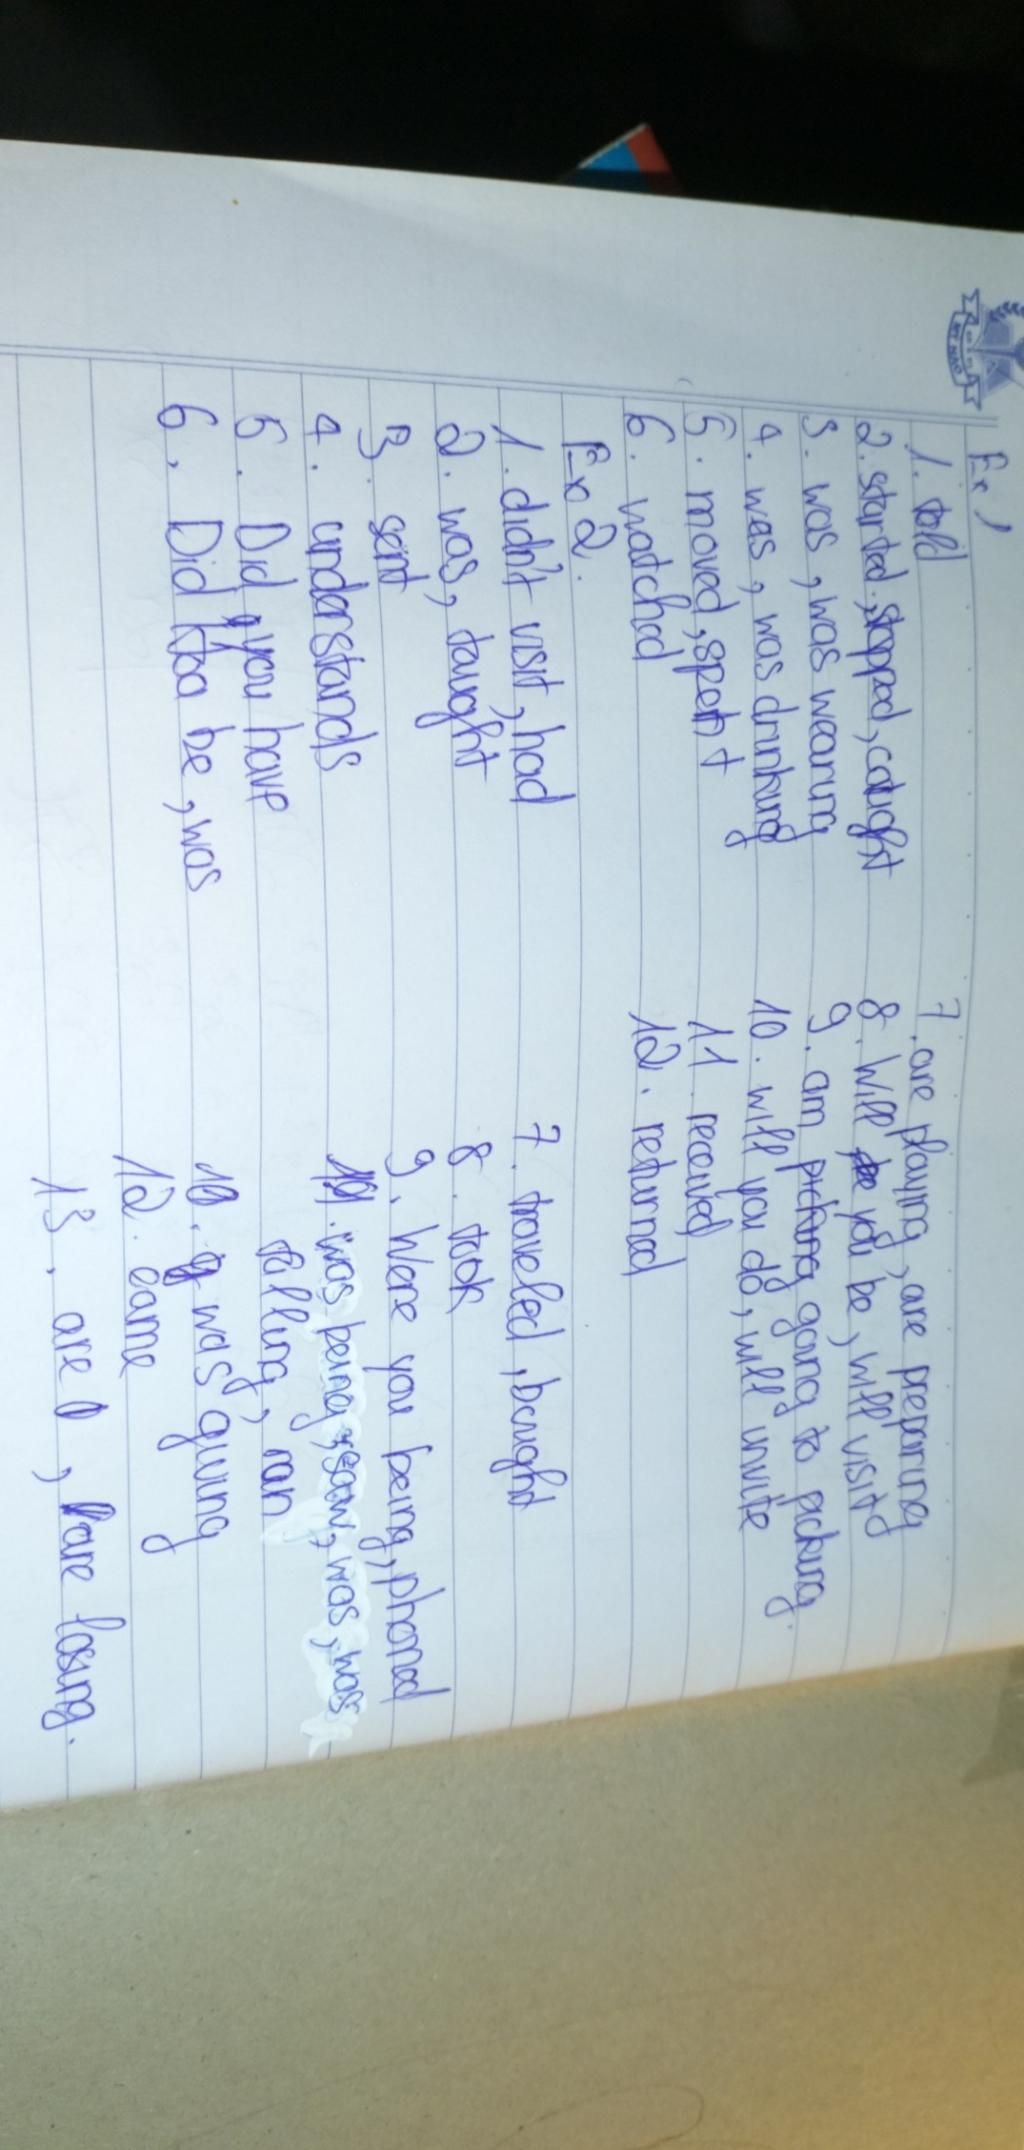 Ex1
1. told
2. started, stopped, caught
3. was, was wearing
4. was, was drinking
5. moved, spent
6. watched
7. are playing, are preparing
8. Will you be, will visit
9. am going to picking
10. will you do, will invite
11. received
12. returned
Ex2.
1. didn't visit, had
2. was, taught
3. sent
4. understands
5. Did you have
6. Did Hoa be, was
7. traveled, bought
8. took
9. Were you being, phoned
10. was being, saw, was, was
falling, ran
11. was giving
12. came
13. are, are losing.